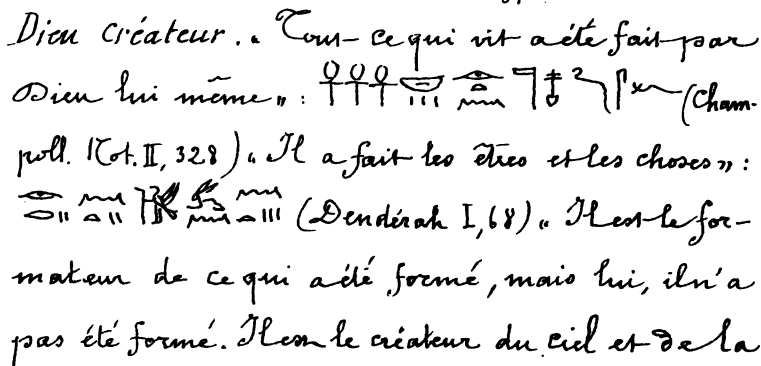 Dieu créateur. « Tout ce qui vit a été fait par
Dieu lui même » : 𓋹𓋹𓋹 (Cham-
poll. Not. II, 328) « Il a fait les êtres et les choses » :
(Dendérah I, 68) « Il est le for-
mateur de ce qui a été formé, mais lui, il n'a
pas été formé. Il est le créateur du ciel et de la